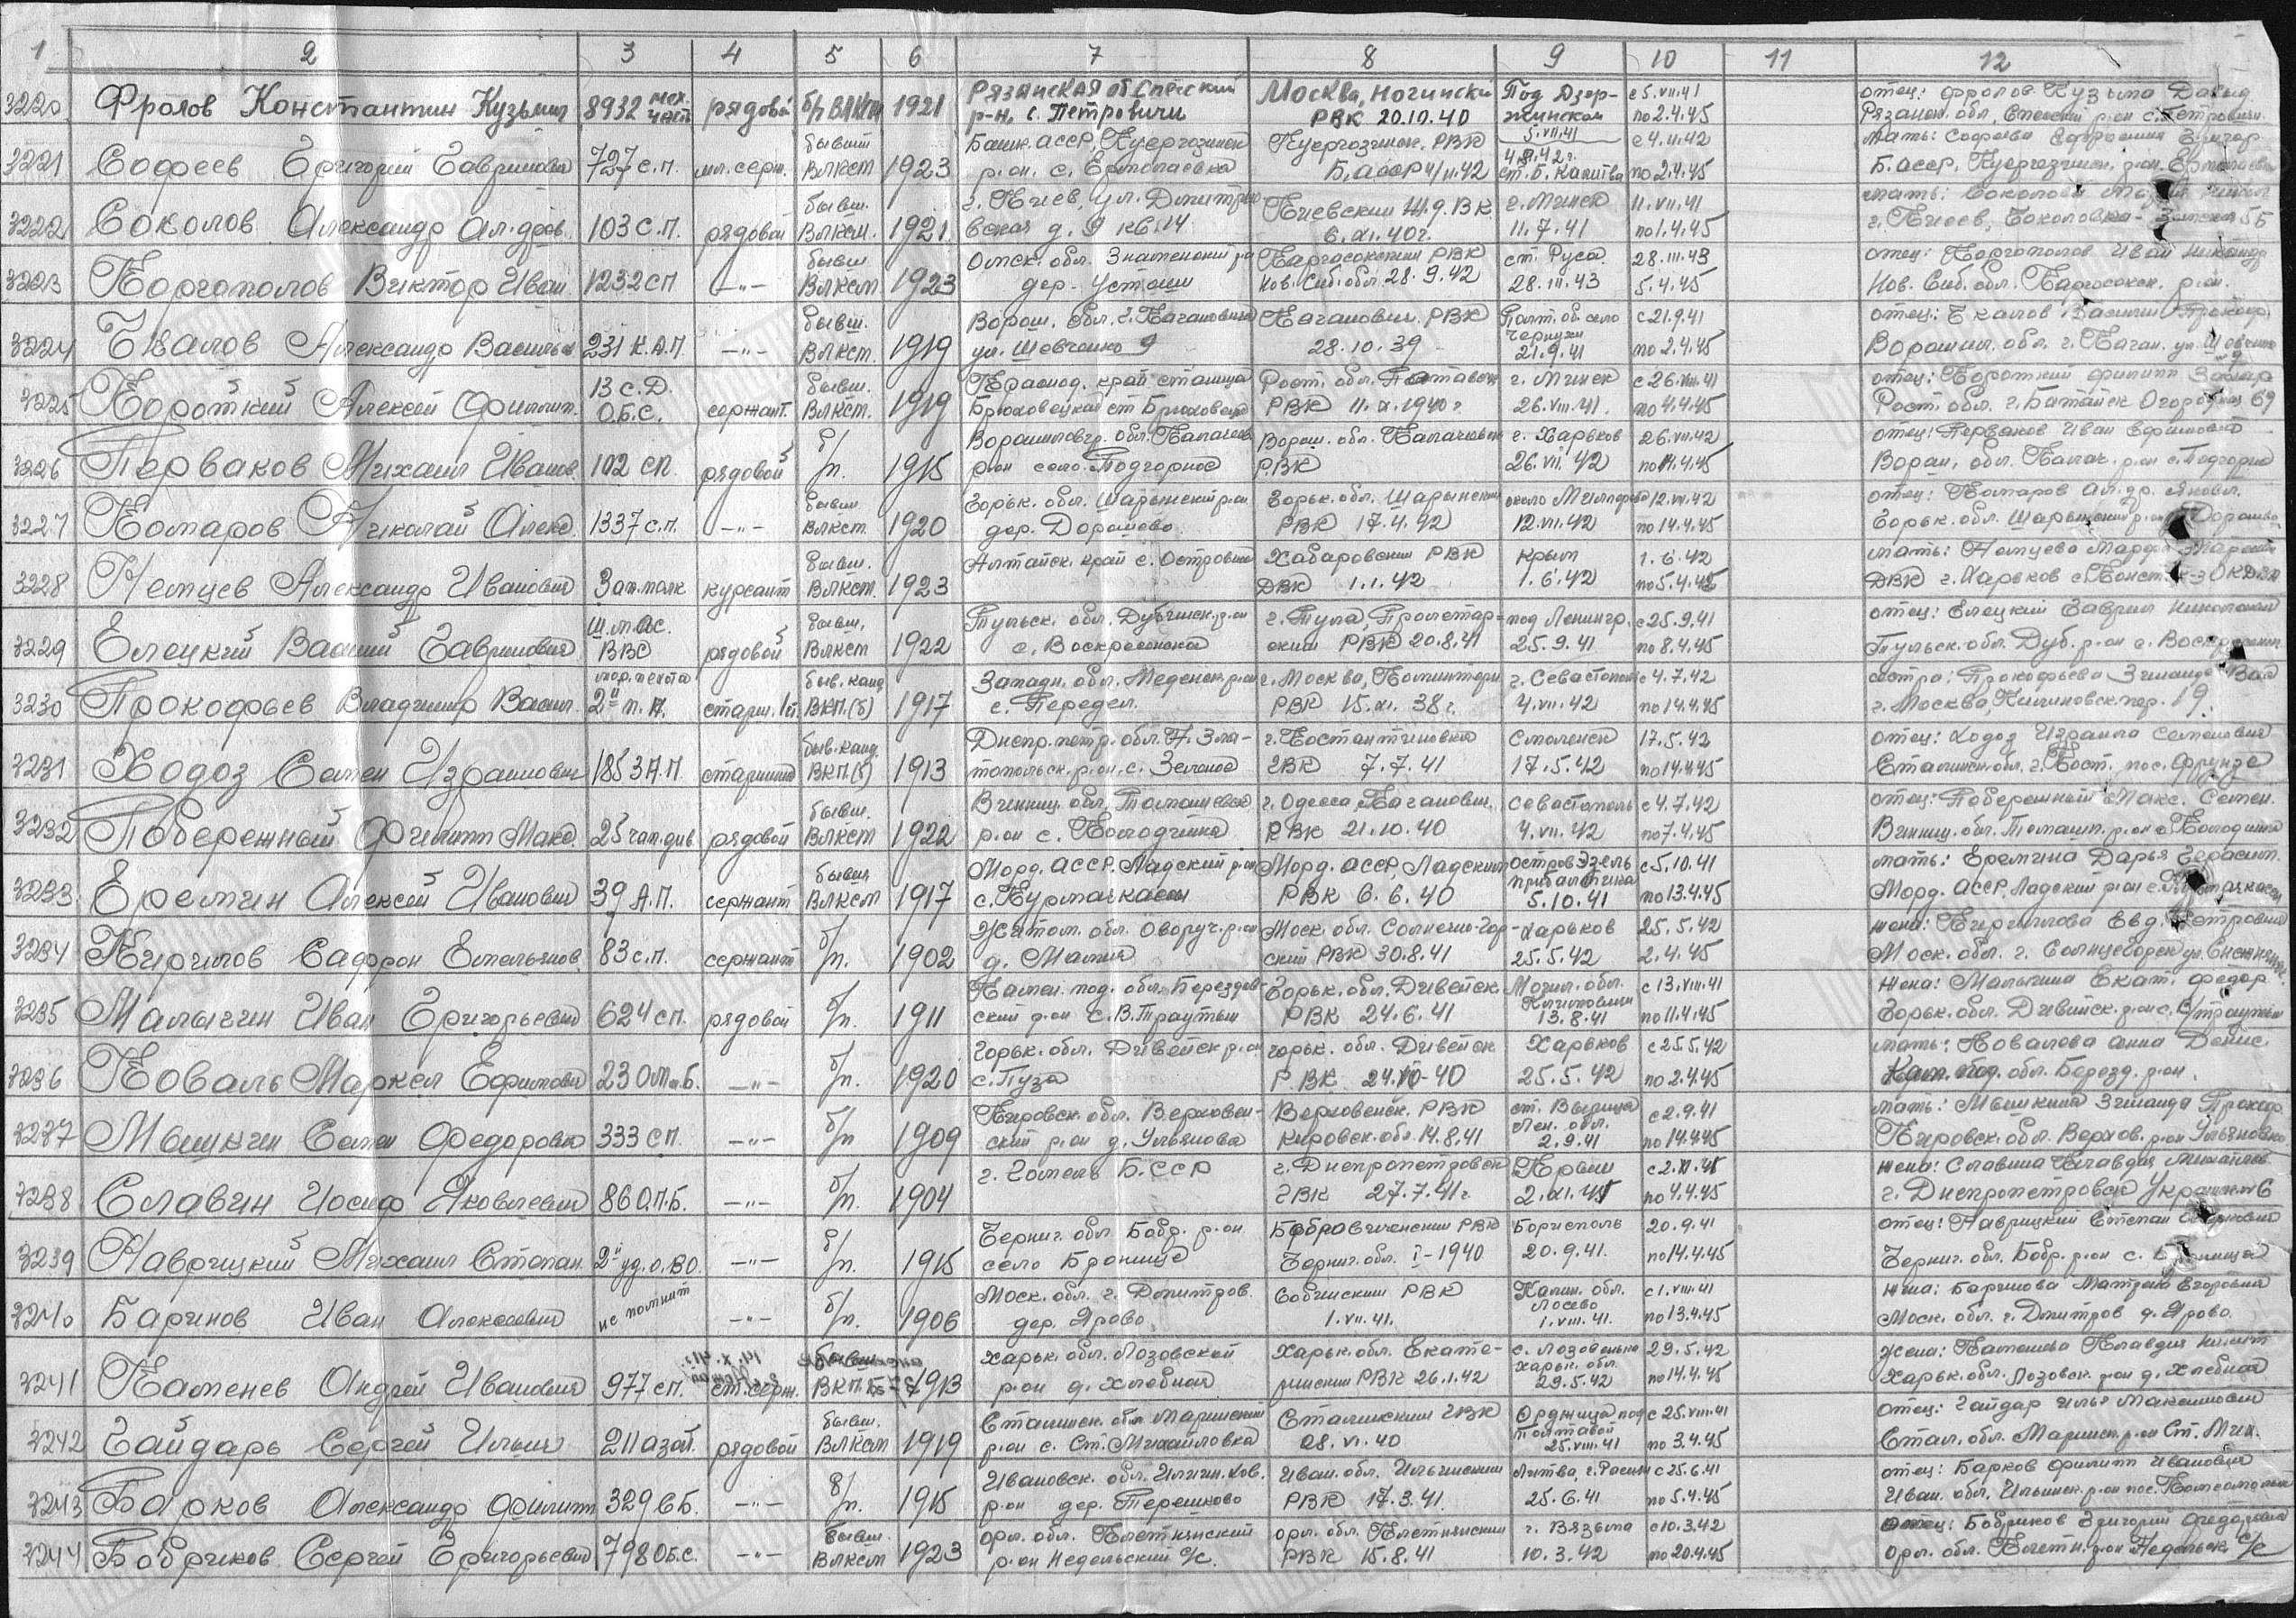 1 2 3 4 5 6 7 8 9 10 11 12
3220 Фролов Константин Кузьмич 8932 мех. част рядовой б/ВЛКСМ 1921 Рязанская об Спасский р-н, с. Петровичи Москва, Ногинский РВК 20.10.40 Под Дзержинском 5.VII.41 с 5.VII.41 по 2.4.45 отец: Фролов Кузьма Давыд. Рязанск. обл, Спасский р-он с. Петровичи
3221 Софеев Григорий Гаврилович 727 с.п. мл. серж. бывший ВЛКСМ 1923 Башк. АССР, Куергазинск р.он. с. Ермолаевка Куергазинск. РВК Б. АССР ст. Б. Калитва с 4. по 2.4.45 мать: Софеева Григор. Б. АССР. Куергазинск. р.он. Ермолаевка
3222 Соколов Александр Ал-дров. 103 с.п. рядовой бывш. ВЛКСМ. 1921 г. Киев, ул. Дмитриевская д. 9 кв. 14 Киевский РВК 6.XI.40г. г. Минск 11.7.41 11.VII.41 по 1.4.45 мать: Соколова г. Киев,
3223 Каргополов Виктор Иван. 1232 сп —"— бывш ВЛКСМ 1923 Омск. обл. Знаменский р-н дер. Усташи Каргасокский РВК Нов. Сиб. обл. 28.9.42 ст. Руса. 28.III.43 28.III.43 5.4.45 отец: Каргополов Иван Никандр Нов. Сиб. обл. Каргасокск. р.он.
3224 Чкалов Александр Василье 231 К.А.П. —"— бывш. ВЛКСМ. 1919 Ворош. обл. г. Каганович ул. Шевченко 9 Каганович. РВК 28.10.39 Полт. об. село Чернухи 21.9.41 с 21.9.41 по 2.4.45 отец: Чкалов Василий Прокоф. Ворошил. обл. г. Каган. ул. Шевченко 9
3225 Короткий Алексей Филипп. 13 С.Д. О.Б.С. сержант. бывш. ВЛКСМ. 1919 Краснод. край станица Брюховецкая ст Брюховецк. Рост. обл. РВК 11.X.1940 г. г. Минск 26.VIII.41. с 26.VIII.41 по 4.4.45 отец: Короткий Филипп Рост. обл. г. Батайск Огородная 69
3226 Перваков Михаил Иванов. 102 сп. рядовой б/п. 1915 обл. Калачеев р.он село. Подгорное Ворош. обл. Калачеевск РВК г. Харьков 26.VII.42 26.VII.42 по 14.4.45 отец: Перваков Иван Ефимович Ворон. обл. Калач. р.он с. Подгорное
3227 Комаров Николай Алекс. 1337 с.п. —"— бывш ВЛКСМ. 1920 Горьк. обл. Шарьинский р.он дер. Дорошево Горьк. обл. Шарьинский РВК 17.4.42 около Миллерово 12.VII.42 12.VII.42 по 14.4.45 отец: Комаров Ал.др. Яковл. Горьк. обл. Шарьинский р-он Дорошево
3228 Немцев Александр Иванович Зап. полк курсант бывш. ВЛКСМ. 1923 Алтайск. край с. Островной Хабаровский РВК ДВК 1.1.42 Крым 1.6.42 1.6.42 по 5.4.45 мать: Немцева Марфа ДВК
3229 Елецкий Василий Гаврилович Ш.М.АС. ВВС рядовой бывш. ВЛКСМ 1922 Тульск. обл. Дубенск. р.он с. Воскресенка г. Тула, Пролетарский РВК 20.8.41 под Ленингр. 25.9.41 с 25.9.41 по 8.4.45 отец: Елецкий Гаврил Николаевич Тульск. обл. Дуб. р.он с. Воскресенк.
3230 Прокофьев Владимир Васил. мор. пехота 2й п. П. старш. 1 ст. быв. канд ВКП.(б) 1917 Западн. обл. Меденск. р.он с. Передел. г. Москва, Коминтерн РВК 15.XI.38 г. г. Севастополь 4.VII.42 с 4.7.42 по 14.4.45 сестра: Прокофьева Зинаида Вас г. Москва, пер. 19.
3231 Ходоз Семен Израилович 185 З.А.П. старшина быв. канд. ВКП.(б) 1913 Днепр. петр. обл. Н. Златопольск. р.он. с. Зеленое г. Костантиновка ГВК 7.7.41 Смоленск 17.5.42 17.5.42 по 14.4.45 отец: Ходоз Израиль Семенович Сталинск. обл. г. Кост. пос. Фрунзе
3232 Побережный Филипп Макс. 25 чап. див. рядовой бывш. ВЛКСМ 1922 Винниц. обл, Томашпол р.он с. Колодянка г. Одесса, Каганович. РВК 21.10.40 Севастополь 4.VII.42 с 4.7.42 по 7.4.45 отец: Побережный Макс. Семен. Винниц. обл. Томашп. р.он
3233 Еремин Алексей Иванович 39 А.П. сержант бывш ВЛКСМ 1917 Морд. АССР. Ладский р.он с. Курмачкасы Морд. АССР, Ладский РВК 6.6.40 остров Эзель Прибалтика 5.10.41 с 5.10.41 по 13.4.45 мать: Еремина Дарья Герасим. Морд. АССР, Ладский р.он с. Курмачкасы
3234 Кирилов Сафрон Емельянов. 83 с.п. сержант б/п. 1902 Житом. обл. Овруч. р.он д. Моск. обл. Солнечно-Горский РВК 30.8.41 Харьков 25.5.42 25.5.42 2.4.45 жена: Кириллова Евд. Петровна Моск. обл. г. Солнцегорск
3235 Малыгин Иван Григорьевич 624 сп. рядовой б/п. 1911 Камен. под. обл. Берездовский р.он с. Горьк. обл. Дивеевск РВК 24.6.41 Могил. обл. Климовичи 13.8.41 с 13.VIII.41 по 11.4.45 жена: Малыгина Екат. Федор. Горьк. обл. Дивеевск. р.он
3236 Коваль Маркел Ефимович 230 —"— б/п. 1920 Горьк. обл. Дивеевск р.он с. Пуза Горьк. обл. Дивеевск РВК Харьков 25.5.42 с 25.5.42 по 2.4.45 мать: Ковалева Анна Денис. Кам. Под. обл. Березд. р.он.
3237 Мышкин Семен Федорович 333 сп. —"— б/п 1909 Кировск. обл. Верховенский р.он д. Ульянова Верховенск. РВК Кировск. обл. 14.8.41 ст. Вырица Лен. обл. 2.9.41 с 2.9.41 по 14.4.45 мать: Мышкина Зинаида Прокоф. Кировск. обл. Верхов. р.он Ульяново
3238 Славин Иосиф Яковлевич 86 О.П.Б. —"— б/п. 1904 г. Гомель Б.ССР г. Днепропетровск ГВК 27.7.41 г. Крым по 4.4.45 жена: Славина Клавдия Михайлов г. Днепропетровск
3239 Наврицкий Михаил Степан. 2й уд. о. ВО. —"— б/п. 1915 Черниг. обл. Бобр. р.он. село Броница Бобровиченский РВК Черниг. обл. I-1940 Борисполь 20.9.41. 20.9.41 по 14.4.45 отец: Наврицкий Степан Черниг. обл. Бобр. р.он с.
3240 Баринов Иван Алексеевич не помнит —"— б/п. 1906 Моск. обл. г. Дмитров. дер. Ярово РВК 1.VII.41. Калин. обл. Лосево 1.VIII.41. с 1.VIII.41 по 13.4.45 жена: Баринова Матрена Егоровна Моск. обл. г. Дмитров д. Ярово.
3241 Каменев Андрей Иванович 977 сп. ст. серж. ВКП.Б 1913 Харьк. обл. Лозовской р.он д. Хлебная Харьк. обл. РВК 26.1.42 с. Лозовенька Харьк. обл. 29.5.42 29.5.42 по 14.4.45 жена: Каменева Клавдия Никит. Харьк. обл. Лозовск. р.он д. Хлебная
3242 Гайдарь Сергей Ильич 211 азсп. рядовой бывш. ВЛКСМ 1919 Сталинск. обл. Марьинский р.он с. Ст. Михайловка Сталинский ГВК 28.VI.40 Оржица под Полтавой 25.VIII.41 с 25.VIII.41 по 3.4.45 отец: Гайдар Илья Максимович Стал. обл. Марьинск. р.он Ст. Мих.
3243 Барков Александр Филипп 329 —"— б/п. 1915 Ивановск. обл. р.он дер. Терешково Иван. обл. Ильинский РВК 17.3.41. Литва, 25.6.41 с 25.6.41 по 5.4.45 отец: Барков Филипп Иванович Иван. обл. Ильинск. р.он пос.
3244 Бобриков Сергей Григорьевич 798 О.б.с. —"— бывш. ВЛКСМ 1923 Орл. обл. Клетнянский р.он Недельский с/с. орл. обл. Клетнянский РВК 15.8.41 г. Вязьма 10.3.42 с 10.3.42 по 20.4.45 отец: Бобриков Григорий Федорович орл. обл. Клетн. р.он Недельск. с/с